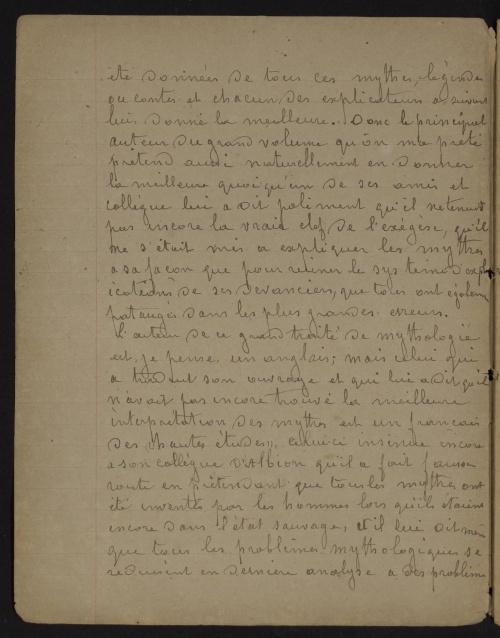 été données de tous ces mythes, légendes
ou contes et chacun des explicateurs a suivant
lui donné la meilleure. Donc le principal
auteur du grand volume qu'on m'a preté
prétend aussi naturellement en donner
la meilleure quoiqu'un de ses amis et
collègue lui a dit poliment qu'il ne tenait
pas encore la vraie clef de l'exégèse, qu'il
ne s'était mis a expliquer les mythes
a sa façon que pour ruiner le système d'expl
ications de ses devanciers, que tous ont également
pataugés dans les plus grandes erreurs.
L'auteur de ce grand traité de mythologie
est, je pense, un anglais; mais celui qui
a traduit son ouvrage et qui lui a dit qu'il
n'avait pas encore trouvé la meilleure
interprétation des mythes est un français
des hautes études, celui-ci insinue encore
a son collègue d'Albion qu'il a fait fausse
route en prétendant que tous les mythes ont
été inventés par les hommes lors qu'ils étaient
encore dans l'état sauvage, et il lui dit
que tous les problèmes mythologiques se
réduisent en dernière analyse a des problèmes